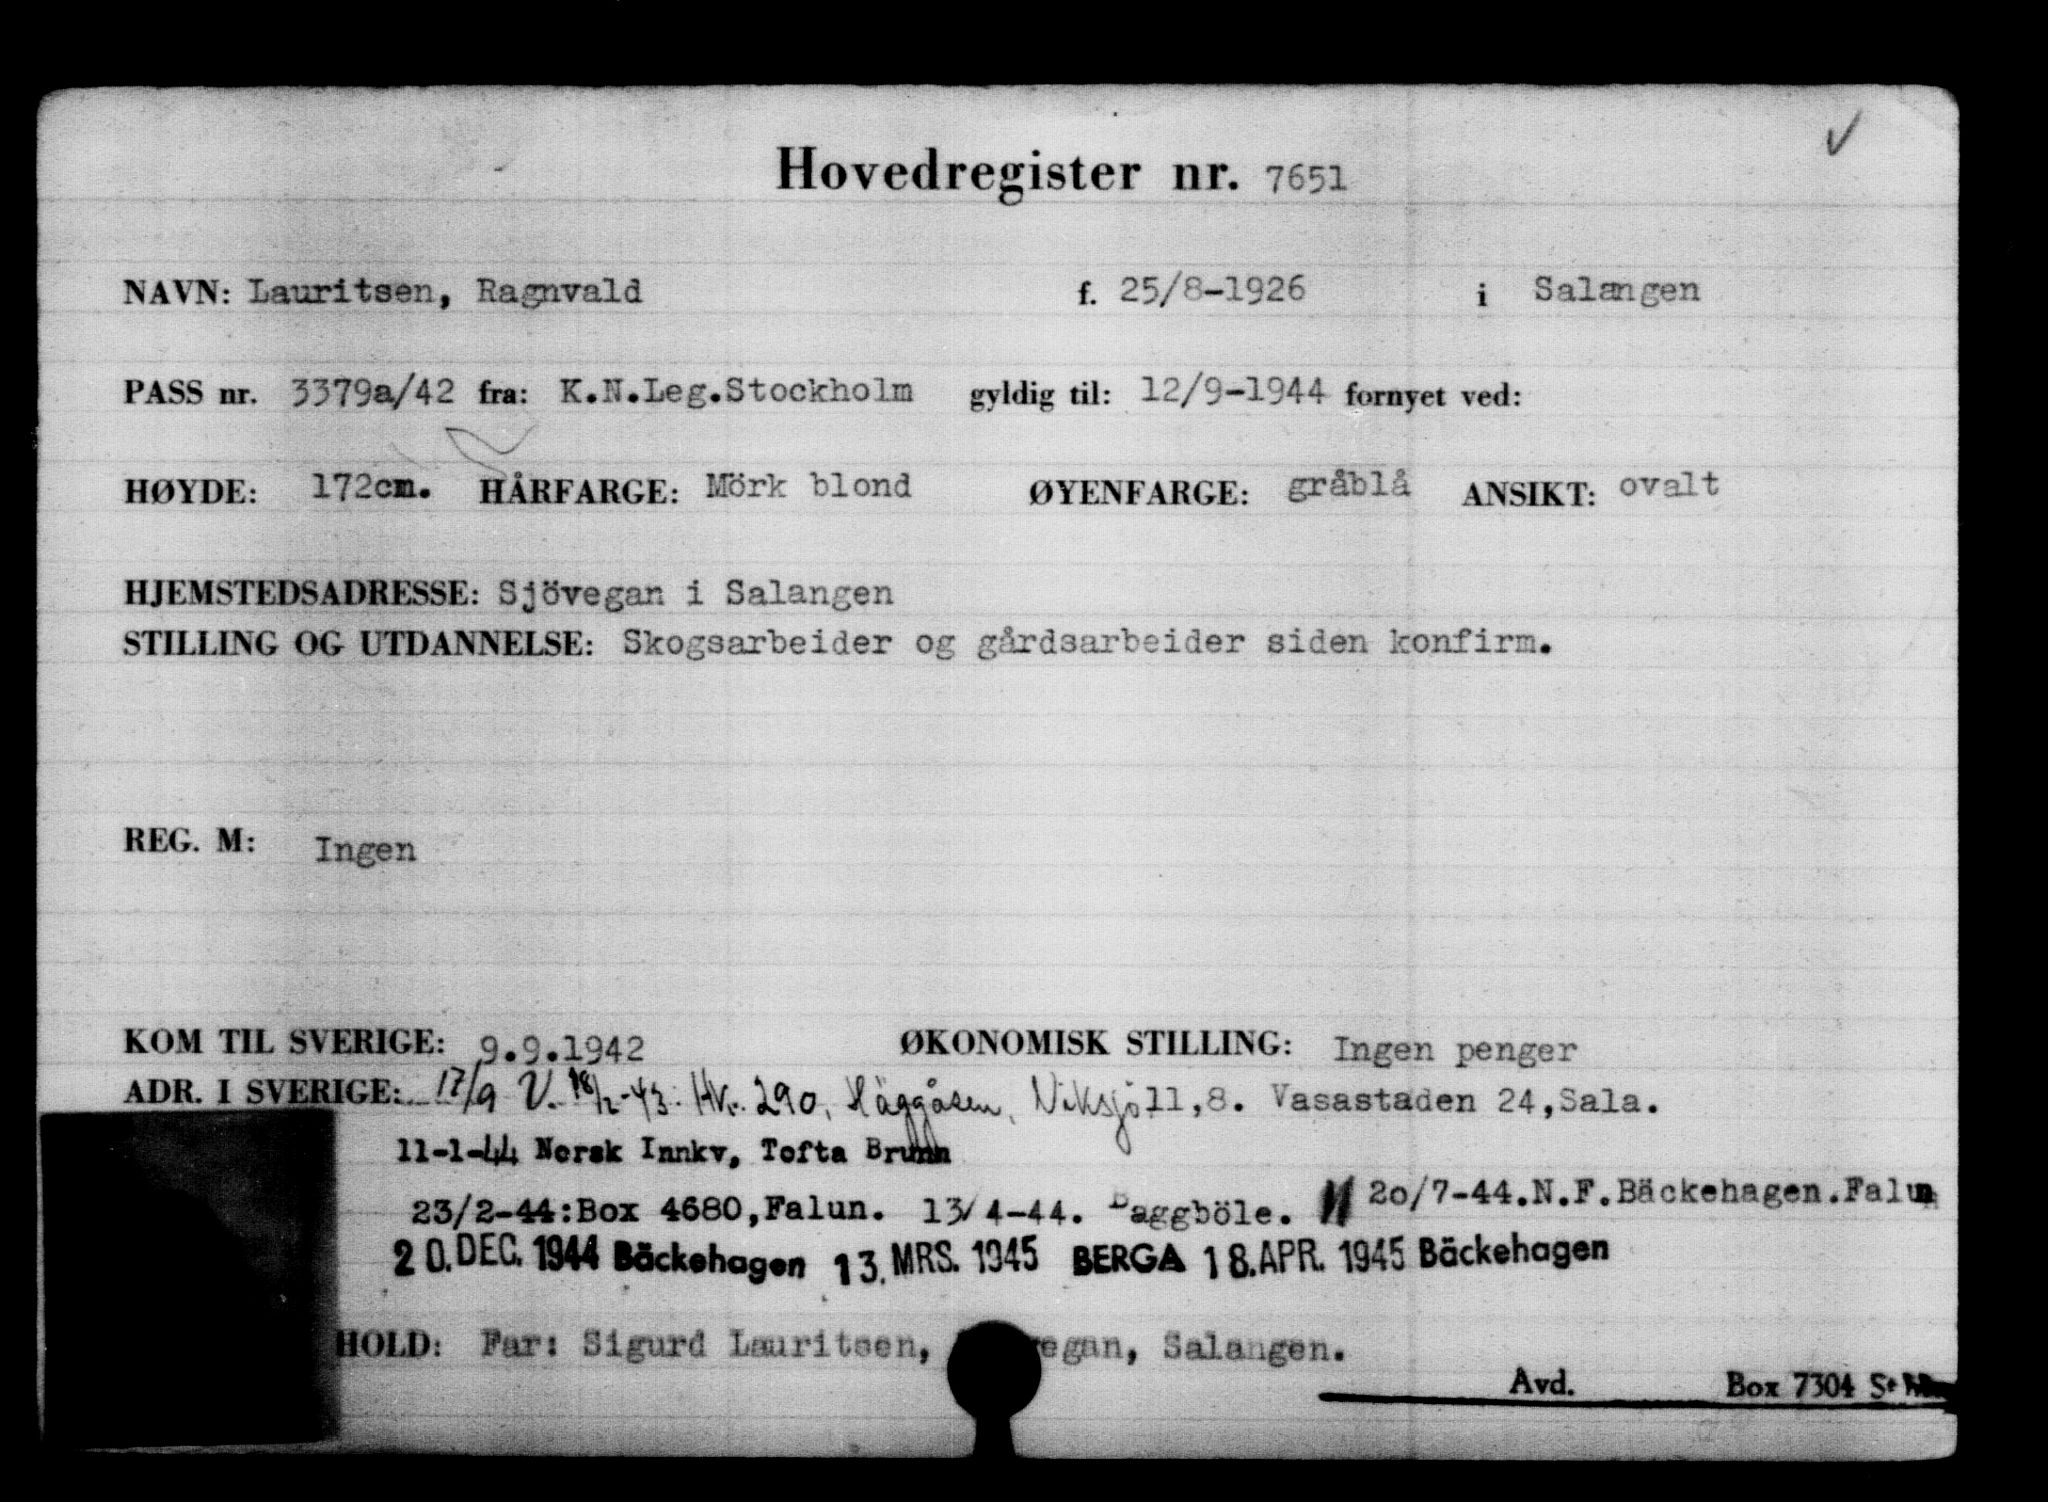 Hovedregister nr. 7651
NAVN: Lauritsen, Ragnvald f. 25/8-1926 i Salangen
PASS nr. 3379a/42 fra: K.N.Leg.Stockholm gyldig til: 12/9-1944 fornyet ved:
HØYDE: 172cm. HÅRFARGE: Mörk blond ØYENFARGE: gråblå ANSIKT: ovalt
HJEMSTEDSADRESSE: Sjövegan i Salangen
STILLING OG UTDANNELSE: Skogsarbeider og gårdsarbeider siden konfirm.
REG. M: Ingen
KOM TIL SVERIGE: 9.9.1942 ØKONOMISK STILLING: Ingen penger
ADR. I SVERIGE: 17/9 V. 18/2-43. Hv. 290, Häggåsen, Niksjö 11,8. Vasastaden 24,Sala.
11-1-44 Norsk Innkv, Tofta Brunn
23/2-44:Box 4680,Falun. 13/4-44. Baggböle. 20/7-44.N.F.Bäckehagen.Falun
20. DEC. 1944 Bäckehagen 13. MRS. 1945 BERGA 18. APR. 1945 Bäckehagen
HOLD: Far: Sigurd Lauritsen, vegan, Salangen.
Avd. Box 7304 St